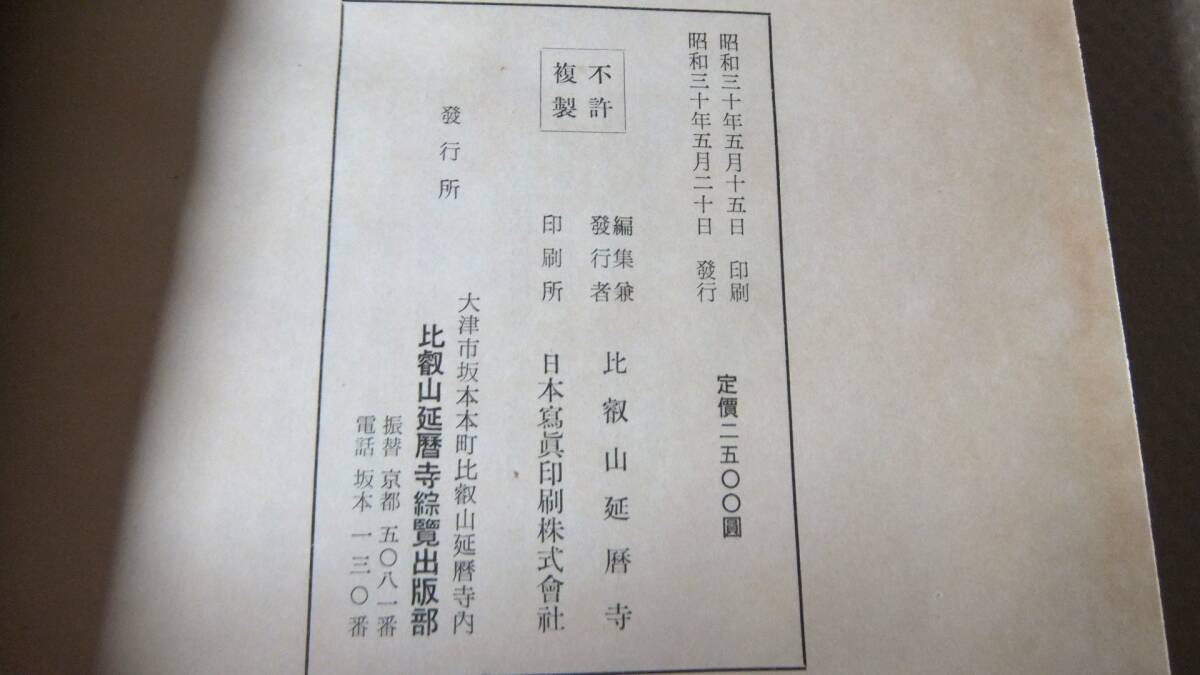 昭和三十年五月十五日 印刷
昭和三十年五月二十日 發行
定價二五〇〇圓
不許
複製
編集兼
發行者
比叡山延暦寺
印刷所 日本寫眞印刷株式會社
發行所
大津市坂本本町比叡山延暦寺內
比叡山延暦寺綜覽出版部
振替 京都 五〇八一番
電話 坂本 一三〇番